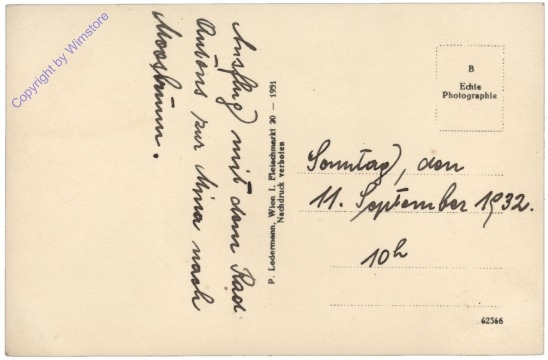 Ausflug mit dem Rad
Antons zur Mina nach
Moosbrunn.
P. Ledermann, Wien I. Fleischmarkt 20 – 1931
Nachdruck verboten
B
Echte
Photographie
Sonntag, den
11. September 1932.
10h
62366
Copyright by Wimstore